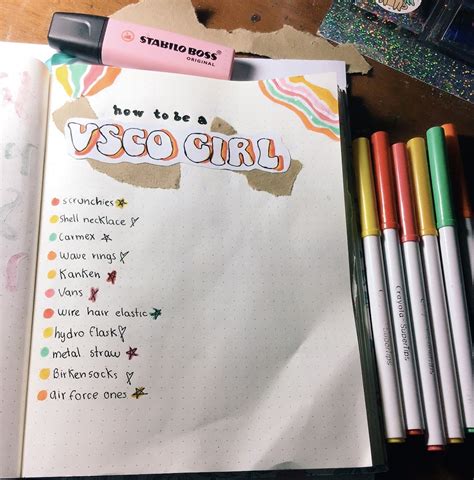 STABILO BOSS
ORIGINAL
how to be a
VSCO GIRL
scrunchies
shell necklace
Carmex
Wave rings
Kanken
Vans
wire hair elastic
hydro flask
metal straw
Birkensocks
air force ones
Crayola SuperTips